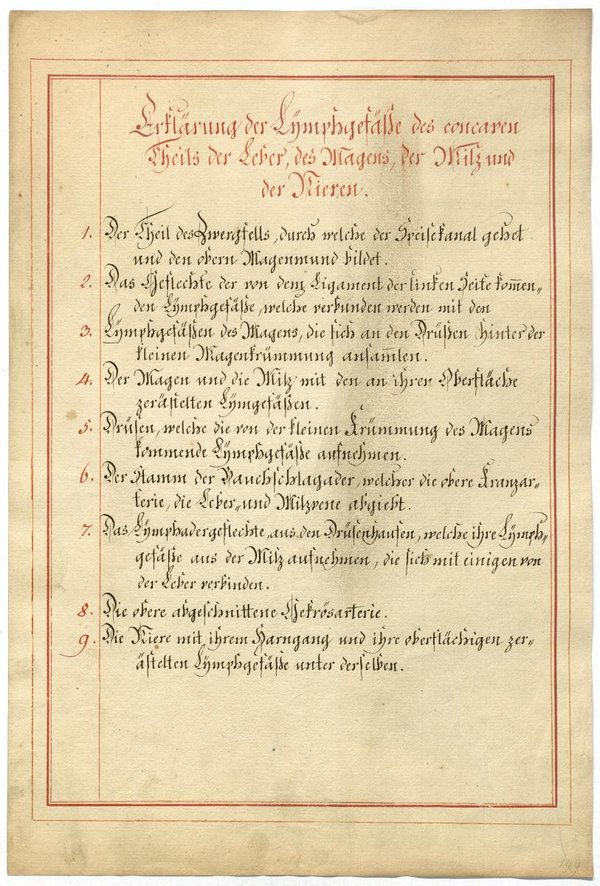 Erklärung der Lÿmphgefäße des concaven
Theils der Leber, des Magens, der Milz und
der Nieren.
1. Der Theil des Zwergfells, durch welche der Speisekanal gehet
und den obern Magenmund bildet.
2. Das Geflechte der von dem Ligament der linken Seite kom̅en-
den Lÿmphgefäße, welche verbunden werden mit den
3. Lÿmphgefäßen des Magens, die sich an den Drüßen hinter der
kleinen Magenkrümmung ansam̅len.
4. Der Magen und die Milz mit den an ihrer Oberfläche
zerästelten Lÿmgefäßen.
5. Drüsen, welche die von der kleinen Krümmung des Magens
kommende Lÿmphgefäße aufnehmen.
6. Der Stamm der Bauchschlagader, welcher die obere Kranzar-
terie, die Leber- und Milzvene abgiebt.
7. Das Lÿmphadergeflechte, aus den Drüsenhaufen, welche ihre Lÿmph-
gefäße aus der Milz aufnehmen, die sich mit einigen von
der Leber verbinden.
8. Die obere abgeschnittene Gekrösarterie.
9. Die Niere mit ihrem Harngang und ihre oberflächigen zer-
ästelten Lÿmphgefäße unter derselben.
149